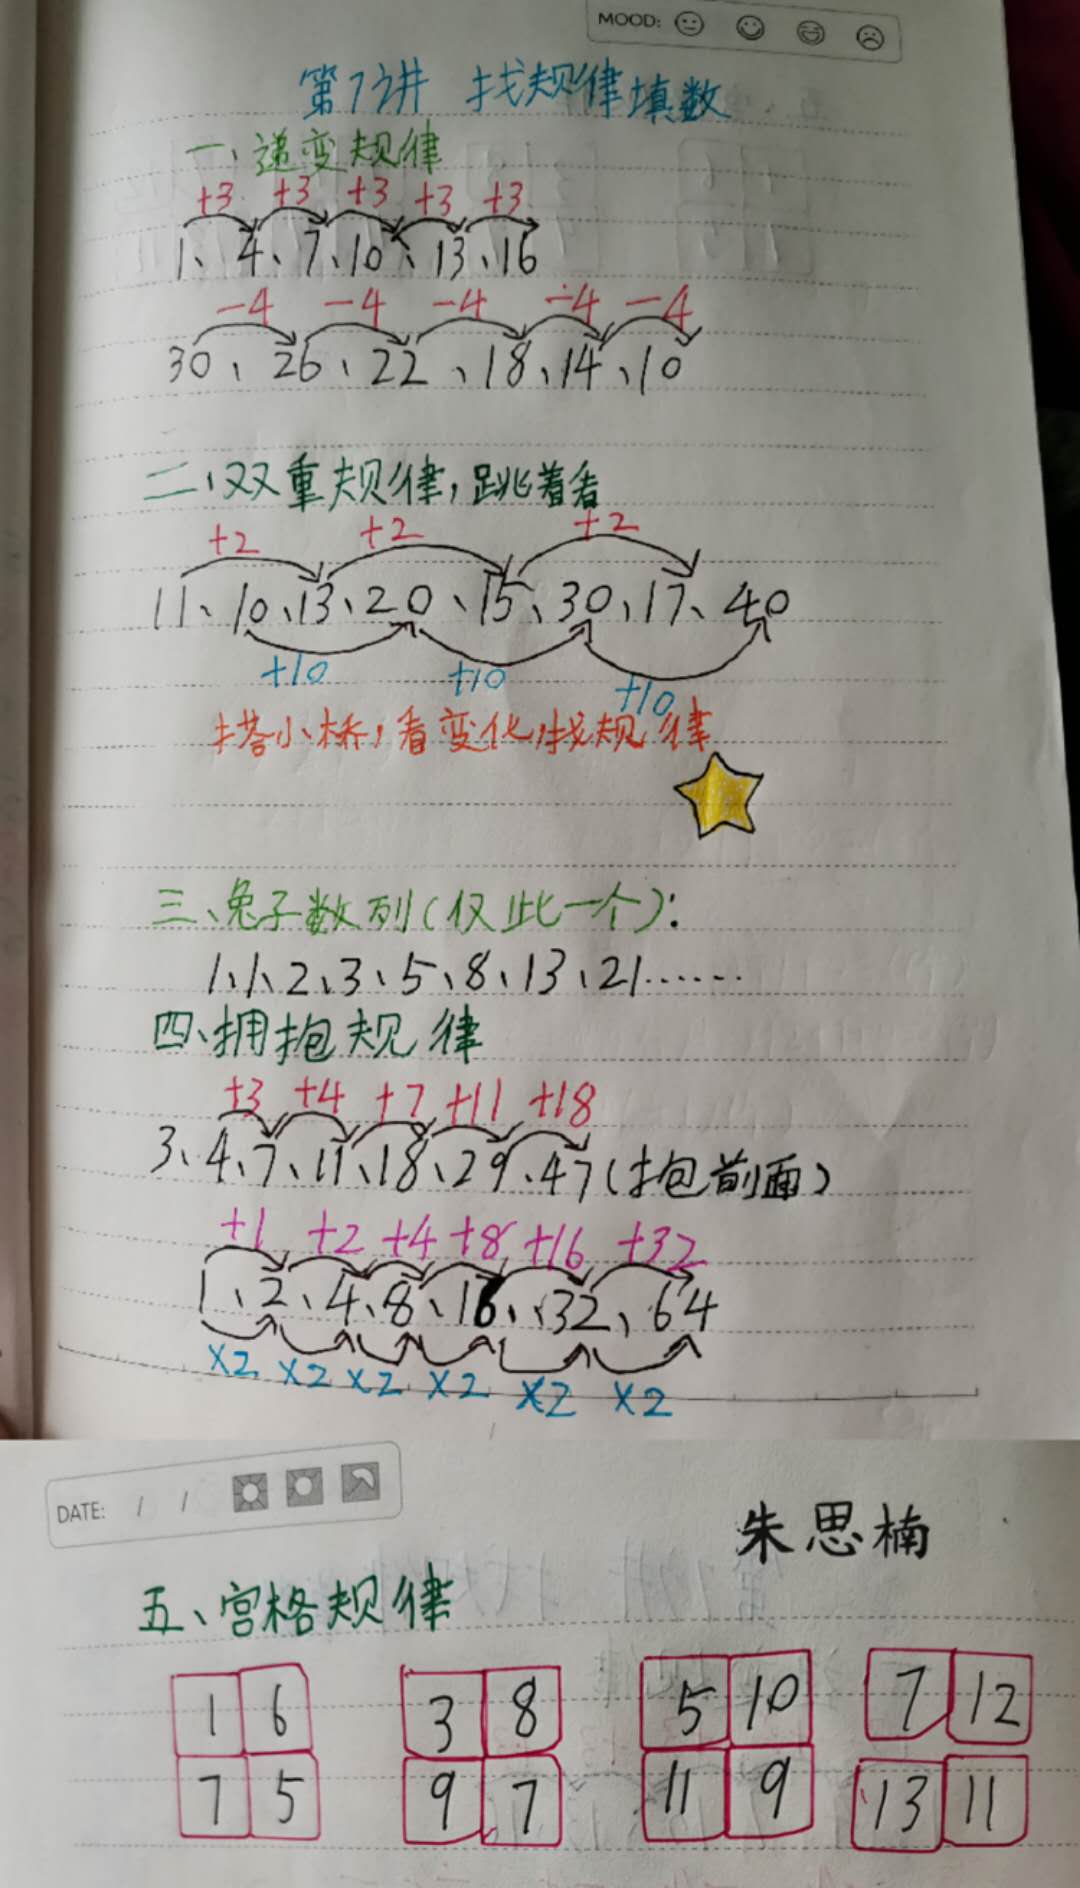 MOOD:
第7讲 找规律填数
一、递变规律
+3 +3 +3 +3 +3
1、4、7、10、13、16
-4 -4 -4 -4 -4
30、26、22、18、14、10
二、双重规律，跳着看
+2 +2 +2
11、10、13、20、15、30、17、40
+10 +10 +10
搭小桥，看变化，找规律
三、兔子数列（仅此一个）：
1、1、2、3、5、8、13、21……
四、拥抱规律
+3 +4 +7 +11 +18
3、4、7、11、18、29、47（抱前面）
+1 +2 +4 +8 +16 +32
1、2、4、8、16、32、64
×2 ×2 ×2 ×2 ×2 ×2
DATE: / /
朱思楠
五、宫格规律
1 6 3 8 5 10 7 12
7 5 9 7 11 9 13 11